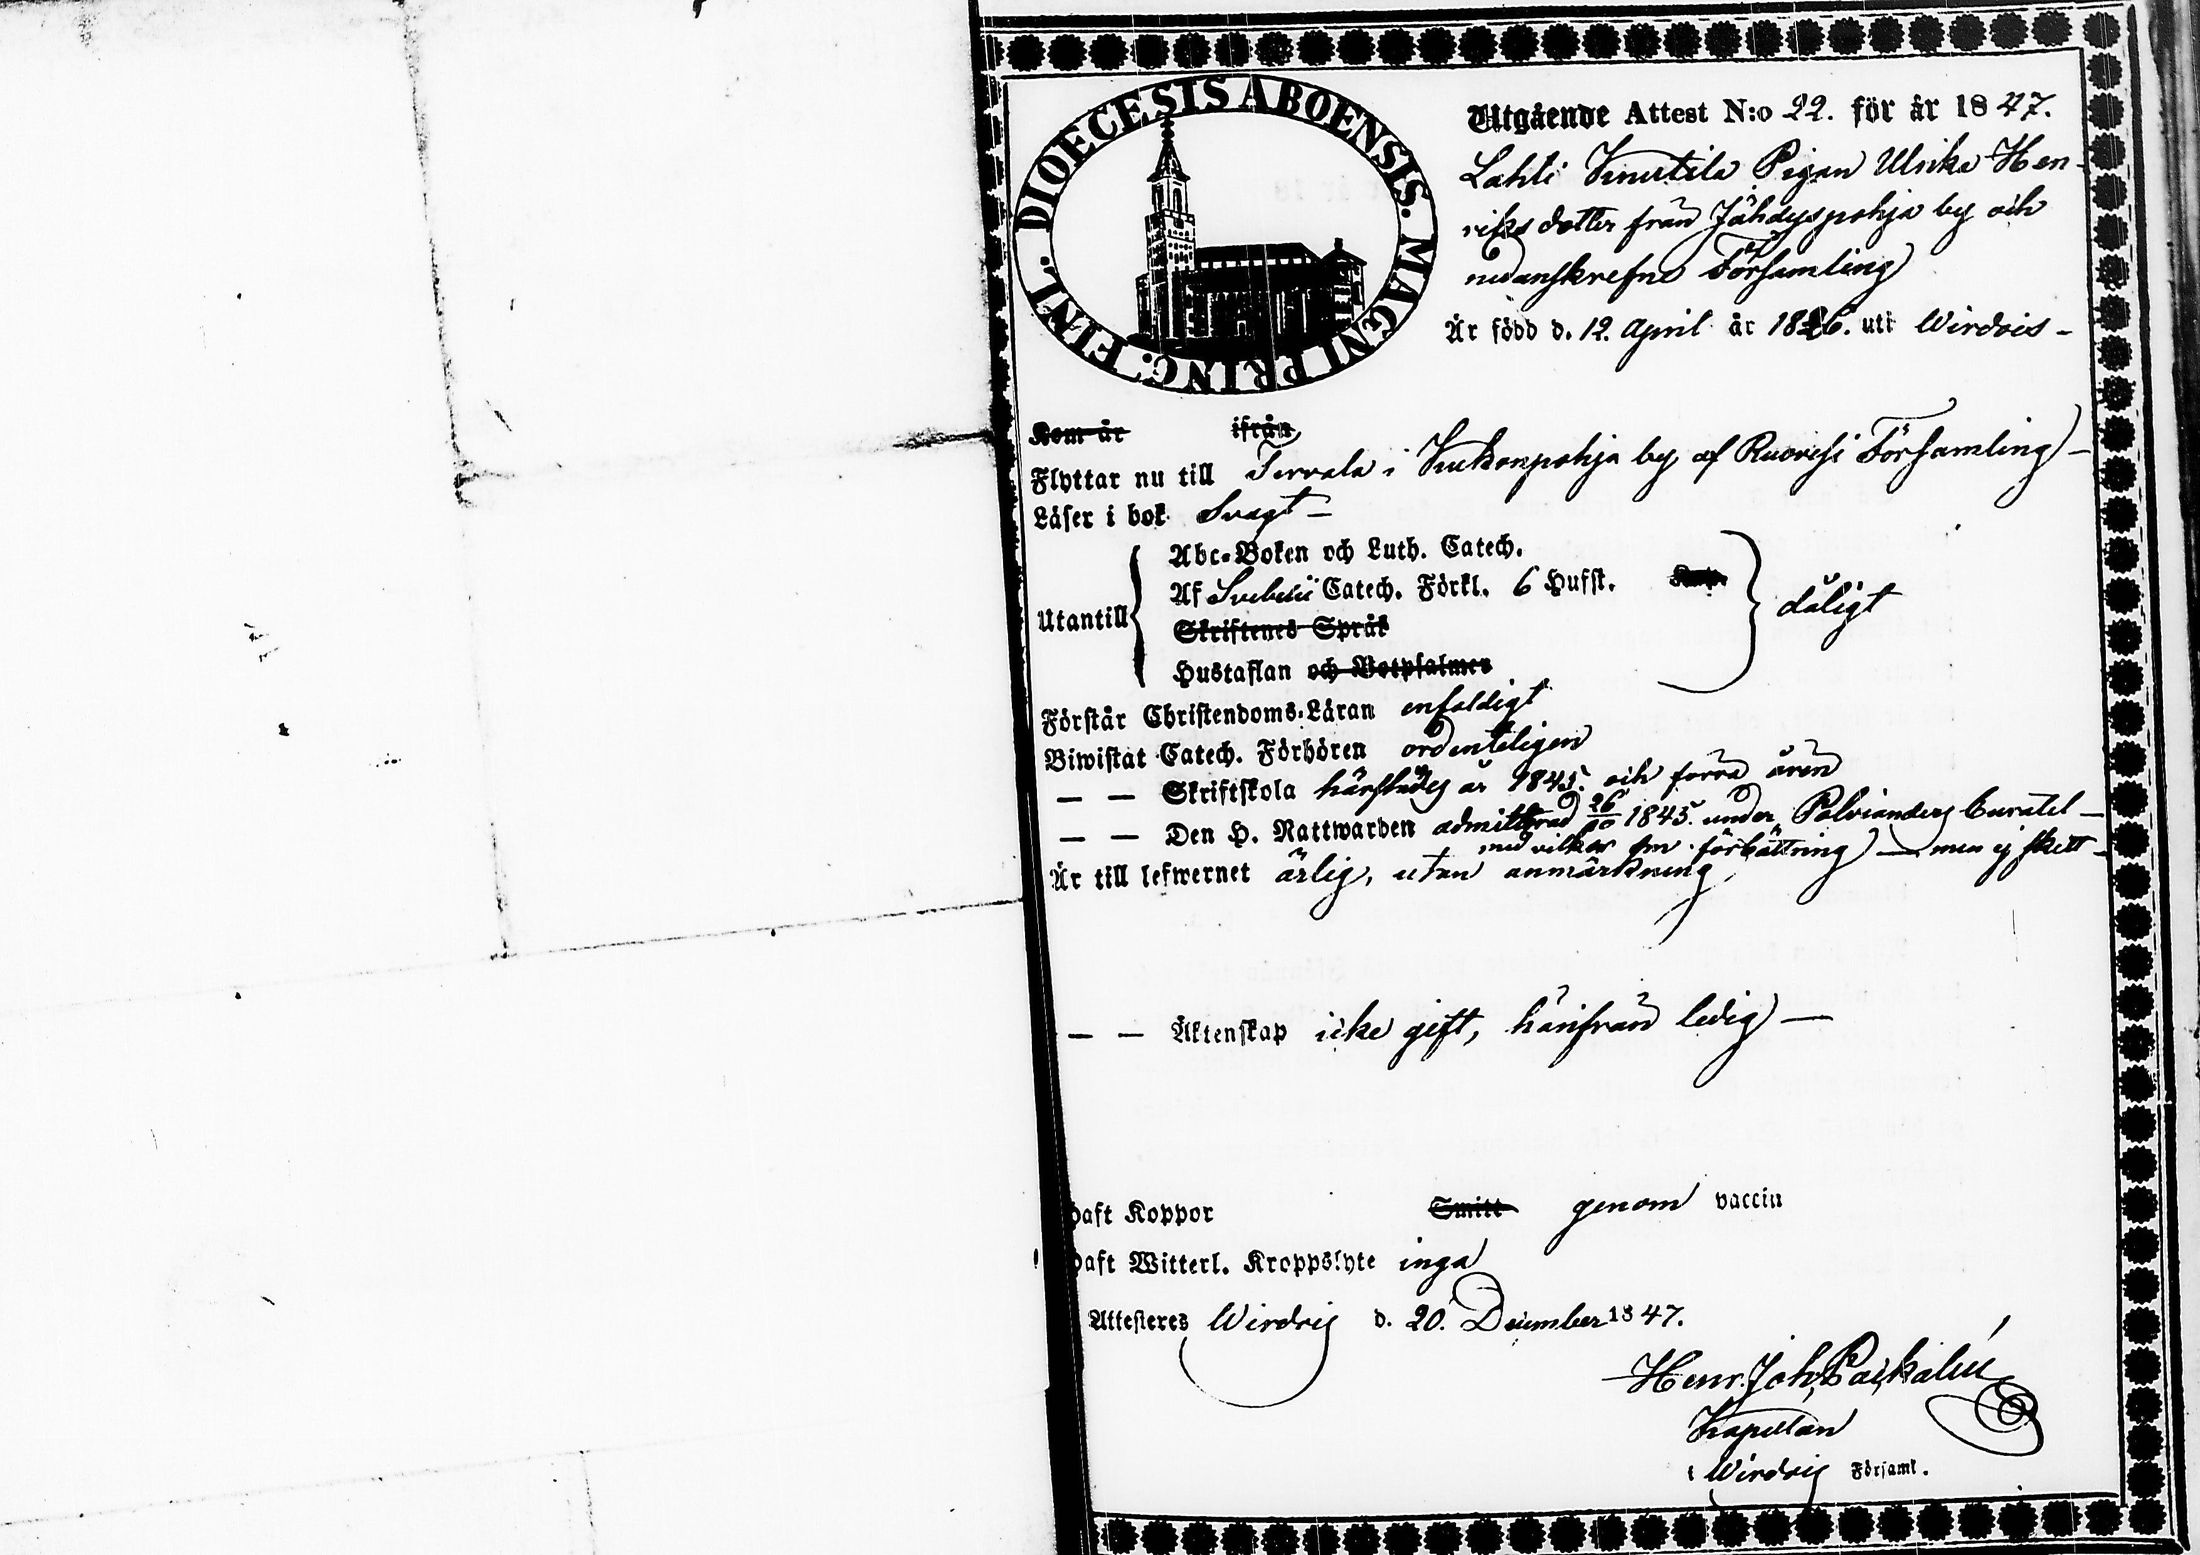 DIOECESIS ABOENSIS. MAGNI PRINC. FINL.
Utgående Attest N:o 22. för år 1847.
Lahti Knuutila Pigan Ulrika Hen-
riksdotter från Jähdyspohja by och
nedanskrefne Församling
Är född d. 12. April år 1826. uti Wirdois -
Kom år ifrån
Flyttar nu till Tervala i by af Ruovesi Församling -
Läser i bok Svagt -
Abc-Boken och Luth. Catech.
Af Svebelii Catech. Förkl. 6 Hufst.
Utantill dåligt
Skriftenes Språk
Hustaflan och Botpsalmer
Förstår Christendoms-Läran enfaldigt
Biwistat Catech. Förhören ordenteligen
— — Skriftskola härstädes år 1845. och förra åren
— — Den H. Nattwarden admitterad 26/10 1845. under Polvianders Curatel -
med vilkor om förbättring — men ej skett -
Är till lefwernet ärlig, utan anmärkning
— — Äktenskap icke gift, härifrån ledig —
haft Koppor Smitt genom vaccin
haft Witterl. Kroppslyte inga
Attesteres Wirdois d. 20. December 1847.
Henr. Joh.
Kapellan
i Wirdois Församl.